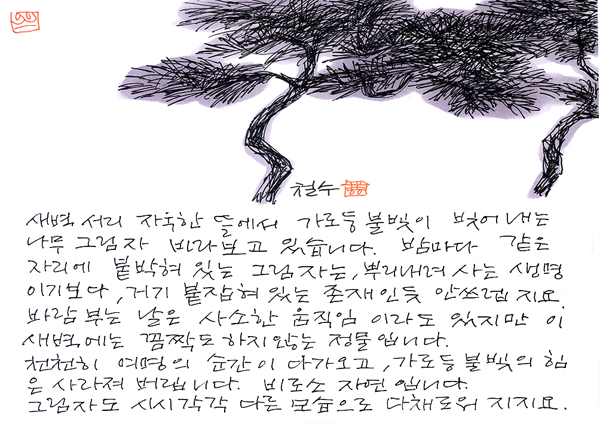 철수
새벽 서리 자욱한 뜰에서 가로등 불빛이 빚어내는
나무 그림자 바라보고 있습니다. 밤마다 같은
자리에 붙박혀 있는 그림자는, 뿌리내려 사는 생명
이기보다, 거기 붙잡혀 있는 존재인듯 안쓰럽지요.
바람 부는 날은 사소한 움직임이라도 있지만 이
새벽에는 꼼짝도 하지않는 정물입니다.
천천히 여명의 순간이 다가오고, 가로등 불빛의 힘
은 사라져 버립니다. 비로소 자연입니다.
그림자도 시시각각 다른 모습으로 다채로워 지지요.